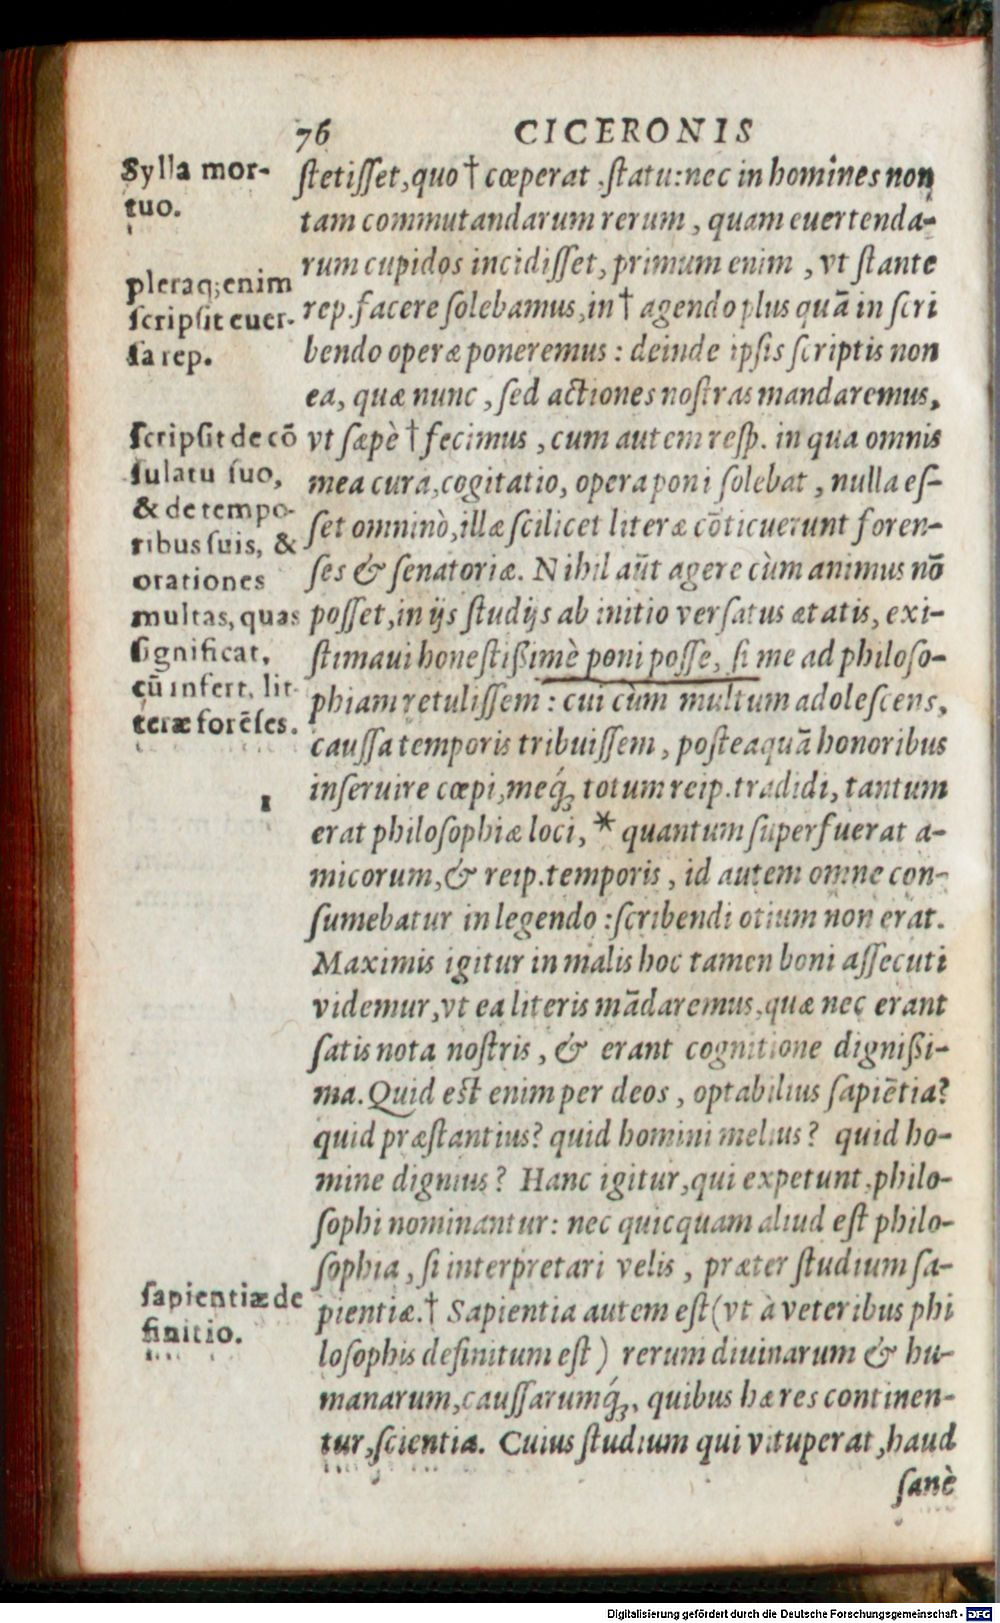 76 CICERONIS
Sylla mor-
tuo.
pleraq; enim
scripsit euer-
sa rep.
scripsit de cō
sulatu suo,
& de tempo-
ribus suis, &
orationes
multas, quas
significat,
cū infert, lit
teræ forēses.
1
sapientiæ de
finitio.
ſtetiſſet, quo † cœperat, ſtatu: nec in homines non
tam commutandarum rerum, quam euertenda-
rum cupidos incidiſſet, primum enim, vt ſtante
rep. facere ſolebamus, in † agendo plus quā in ſcri
bendo operæ poneremus: deinde ipſis ſcriptis non
ea, quæ nunc, ſed actiones noſtras mandaremus,
vt ſæpè † fecimus, cum autem reſp. in qua omnis
mea cura, cogitatio, opera poni ſolebat, nulla eſ-
ſet omninò, illæ ſcilicet literæ cōticuerunt foren-
ſes & ſenatoriæ. Nihil aūt agere cùm animus nō
poſſet, in ijs ſtudijs ab initio verſatus ætatis, exi-
ſtimaui honeſtißimè poni poſſe, ſi me ad philoſo-
phiam retuliſſem: cui cùm multum adoleſcens,
cauſſa temporis tribuiſſem, poſteaquā honoribus
inſeruire cœpi, meq́; totum reip. tradidi, tantum
erat philoſophiæ loci, * quantum ſuperfuerat a-
micorum, & reip. temporis, id autem omne con-
ſumebatur in legendo: ſcribendi otium non erat.
Maximis igitur in malis hoc tamen boni aſſecuti
videmur, vt ea literis mādaremus, quæ nec erant
ſatis nota noſtris, & erant cognitione dignißi-
ma. Quid eſt enim per deos, optabilius ſapiētia?
quid præſtantius? quid homini melius? quid ho-
mine dignius? Hanc igitur, qui expetunt, philo-
ſophi nominantur: nec quicquam aliud eſt philo-
ſophia, ſi interpretari velis, præter ſtudium ſa-
pientiæ. † Sapientia autem eſt (vt à veteribus phi
loſophis definitum eſt) rerum diuinarum & hu-
manarum, cauſſarumq́;, quibus hæ res continen-
tur, ſcientia. Cuius ſtudium qui vituperat, haud
ſanè
Digitalisierung gefördert durch die Deutsche Forschungsgemeinschaft - DFG